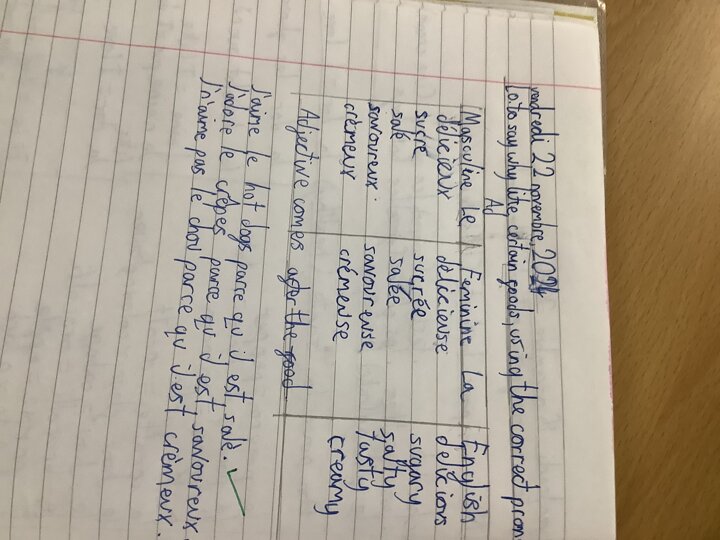 vendredi 22 novembre, 2024
Lo: to say why like certain foods, using the correct pron
Ad
Masculine Le Feminine La English
délicieux délicieuse delicious
sucré sucrée sugary
salé salée salty
savoureux. savoureuse tasty
crémeux crémeuse creamy
Adjective comes after the good
J'aime le hot dogs parce qu'il est salé.
J'adore le crêpes parce qu'il est savoureux.
J'n'aime pas le chou parce qu'il est crèmeux.